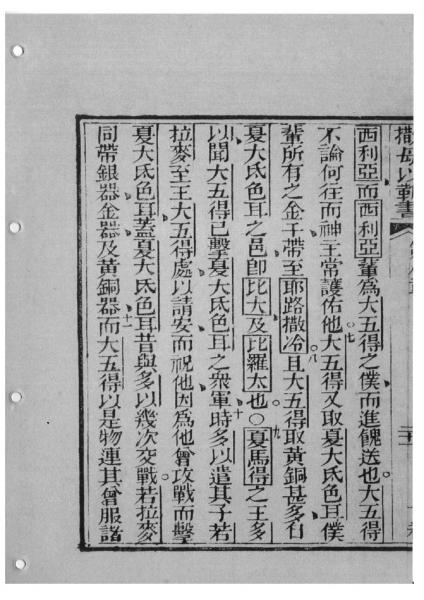 撒母以勒書
西利亞而西利亞輩為大五得之僕而進餽送也大五得
不論何往而神主常護佑他七大五得又取夏大氐色耳僕
輩所有之金干帶至耶路撒冷八且大五得取黃銅甚多
夏大氐色耳之邑卽比大及比羅太也○九夏馬得之王多
以聞大五得已擊夏大氐色耳之衆軍時十多以遣其子若
拉麥至王大五得處以請安而祝他因為他曾攻戰而擊
夏大氐色耳蓋夏大氐色耳昔與多以幾次交戰若拉麥
同帶銀器金器及黃銅器十一而大五得以是物連其曾服諸